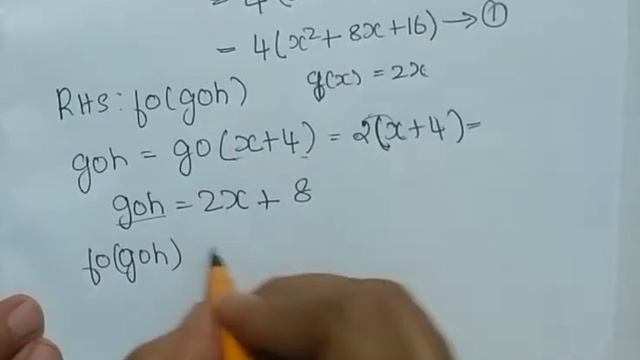 = 4(
= 4(x²+8x+16) → ①
RHS: fo(goh) g(x) = 2x
goh = go(x+4) = 2(x+4)=
goh = 2x + 8
fo(goh)